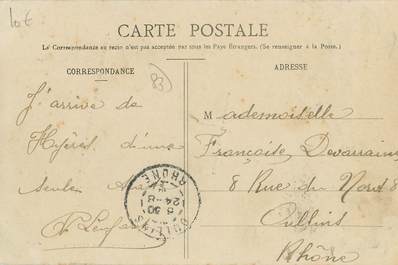 10€
CARTE POSTALE
La Correspondance au recto n'est pas acceptée par tous les Pays Étrangers. (Se renseigner à la Poste.)
CORRESPONDANCE
ADRESSE
83
J'arrive de
Hyères d'une
seule
Mademoiselle
Françoise
8 Rue du Nord 8
Oullins
Rhône
OULLINS
RHONE